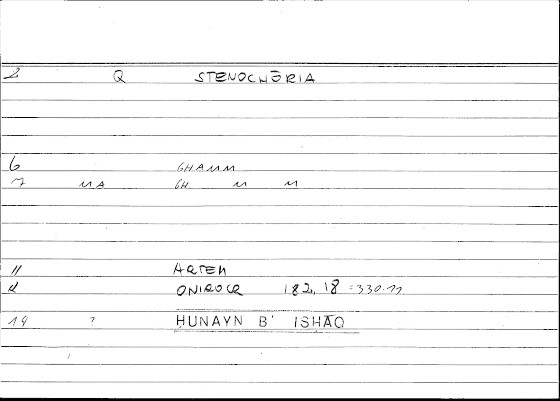 2 Q STENOCHŌRIA
6 GHAMM
7 MA GH M M
11 ARTEM
12 ONIROCR 182, 18 = 330.11
19 ? HUNAYN B' ISHĀQ